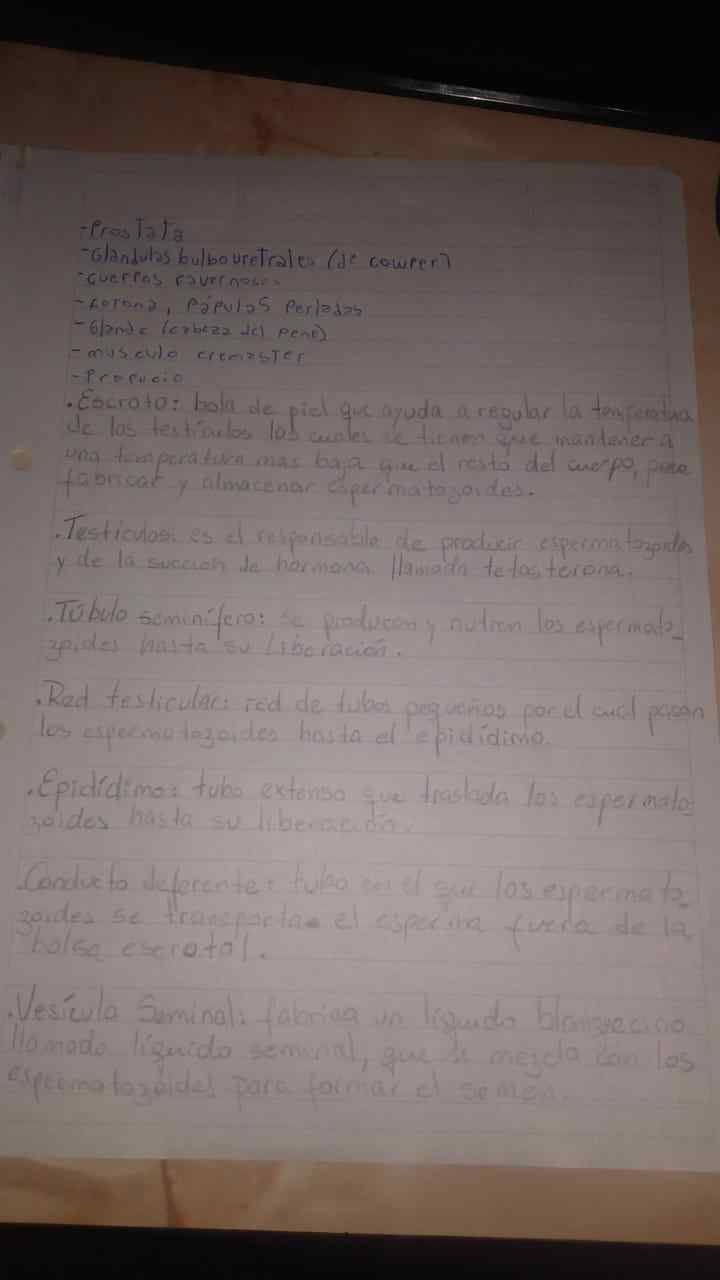 -Prostata
-Glandulas bulbouretrales (de cowper)
-cuerpos cavernosos
-corona, Pápulas Perladas
-Glande (cabeza del pene)
-musculo cremaster
-Prepucio
.Escroto: bola de piel que ayuda a regular la temperatura
de los testículos los cuales se tienen que mantener a
una temperatura mas baja que el resto del cuerpo, para
fabricar y almacenar espermatozoides.
.Testículos: es el responsable de producir espermatozoides
y de la succion de hormona llamada tetosterona.
.Túbulo seminífero: se producen y nutren los espermato_
zoides hasta su liberación.
.Red testicular: red de tubos pequeños por el cual pasan
los espermatozoides hasta el epidídimo.
.Epidídimo: tubo extenso que traslada los espermato_
zoides hasta su liberación.
.Conducto deferente: tubo en el que los espermato_
zoides se transporta el esperma fuera de la
bolsa escrotal.
.Vesícula Seminal: fabrica un líquido blanquecino
llamado líquido seminal, que se mezcla con los
espermatozoides para formar el semen.